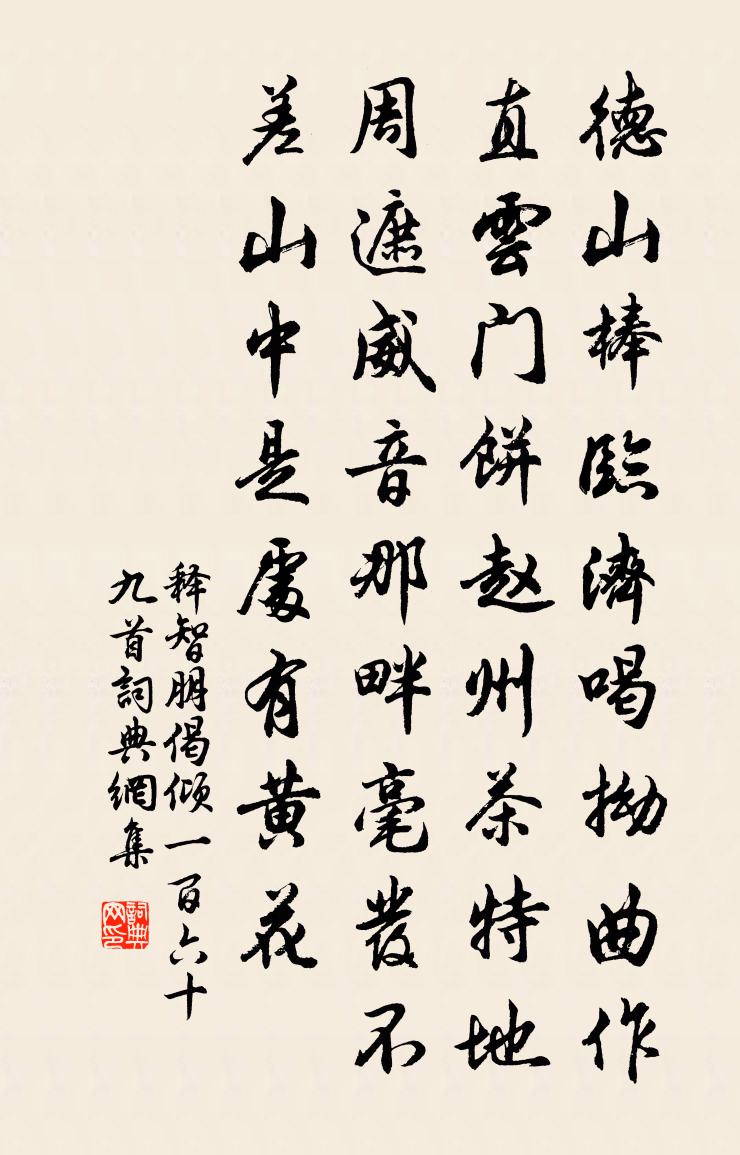 德山棒臨濟喝拗曲作
直雲門餅赵州茶特地
周遮威音那畔毫發不
差山中是處有黄花
释智朋偈倾一百六十
九首詞典網集
詞典
网印